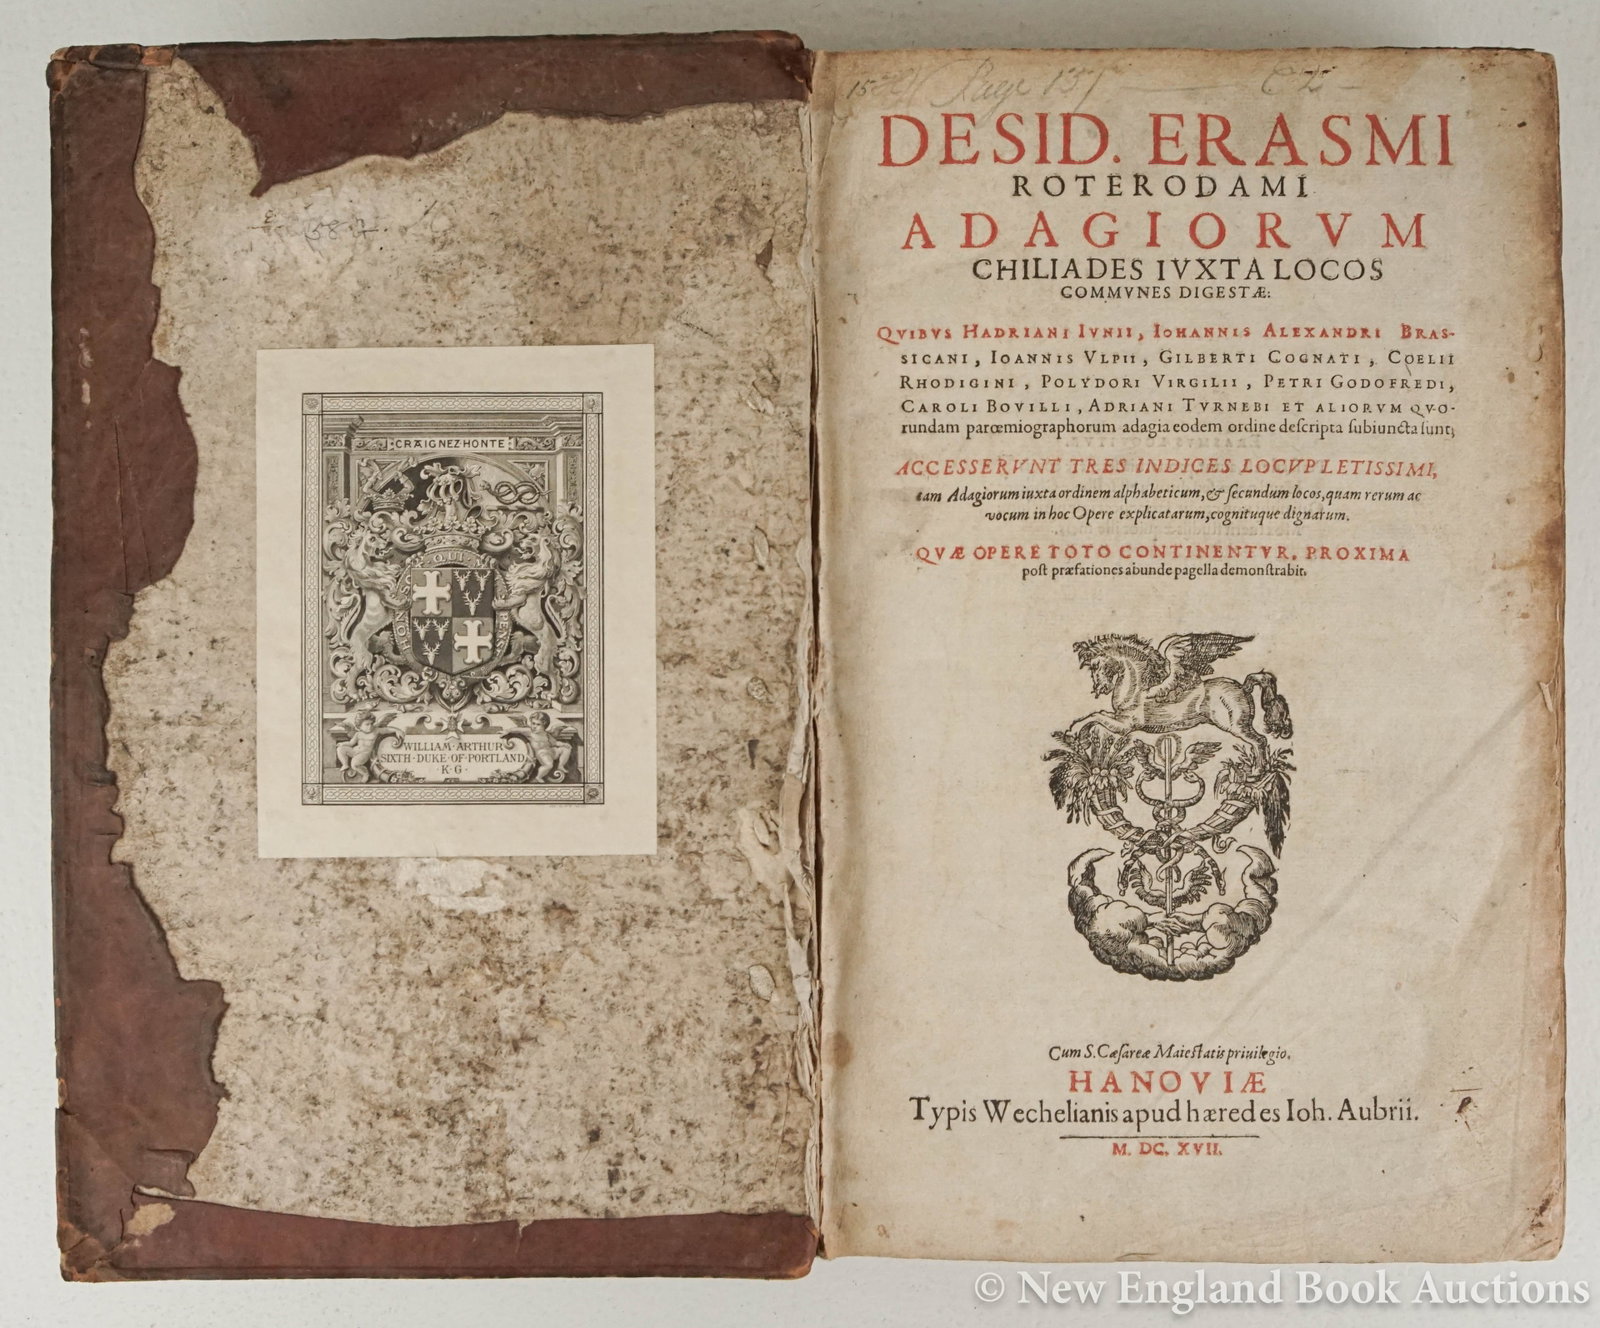 CRAIGNEZ HONTE
HONI SOIT QUI MAL Y PENSE
WILLIAM · ARTHUR
SIXTH · DUKE · OF · PORTLAND
· K · G ·
Page 157
DESID. ERASMI
ROTERODAMI
ADAGIORVM
CHILIADES IVXTA LOCOS
COMMVNES DIGESTÆ:
QVIBVS HADRIANI IVNII, IOHANNIS ALEXANDRI BRAS-
SICANI, IOANNIS VLPII, GILBERTI COGNATI, COELII
RHODIGINI, POLYDORI VIRGILII, PETRI GODOFREDI,
CAROLI BOVILLI, ADRIANI TVRNEBI ET ALIORVM QVO-
rundam parœmiographorum adagia eodem ordine deſcripta ſubiuncta ſunt;
ACCESSERVNT TRES INDICES LOCVPLETISSIMI,
tam Adagiorum iuxta ordinem alphabeticum, & ſecundum locos, quam rerum ac
vocum in hoc Opere explicatarum, cognituque dignarum.
QVÆ OPERE TOTO CONTINENTVR, PROXIMA
poſt præfationes abunde pagella demonſtrabit.
Cum S. Cæſareæ Maieſtatis priuilegio.
HANOVIÆ
Typis Wechelianis apud hæredes Ioh. Aubrii.
M. DC. XVII.
© New England Book Auctions